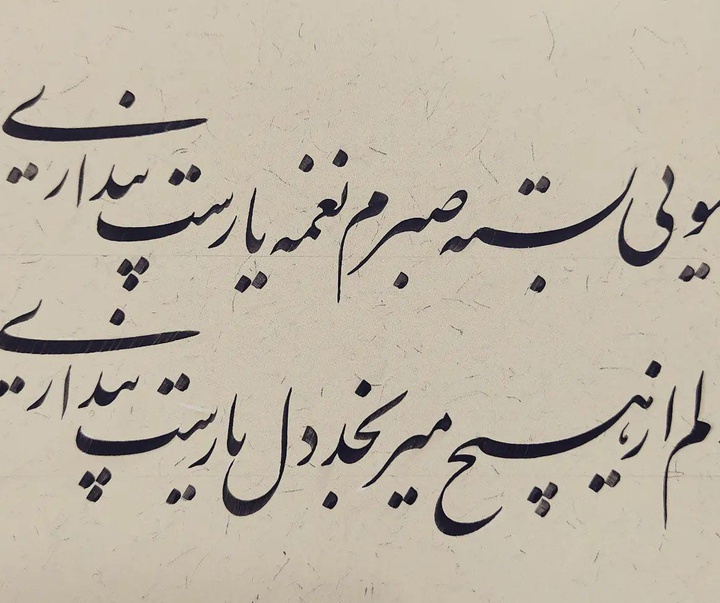 مویی بسته صبرم نغمه یارست پنداری
لم از هیچ میرنجد دل یارست پنداری